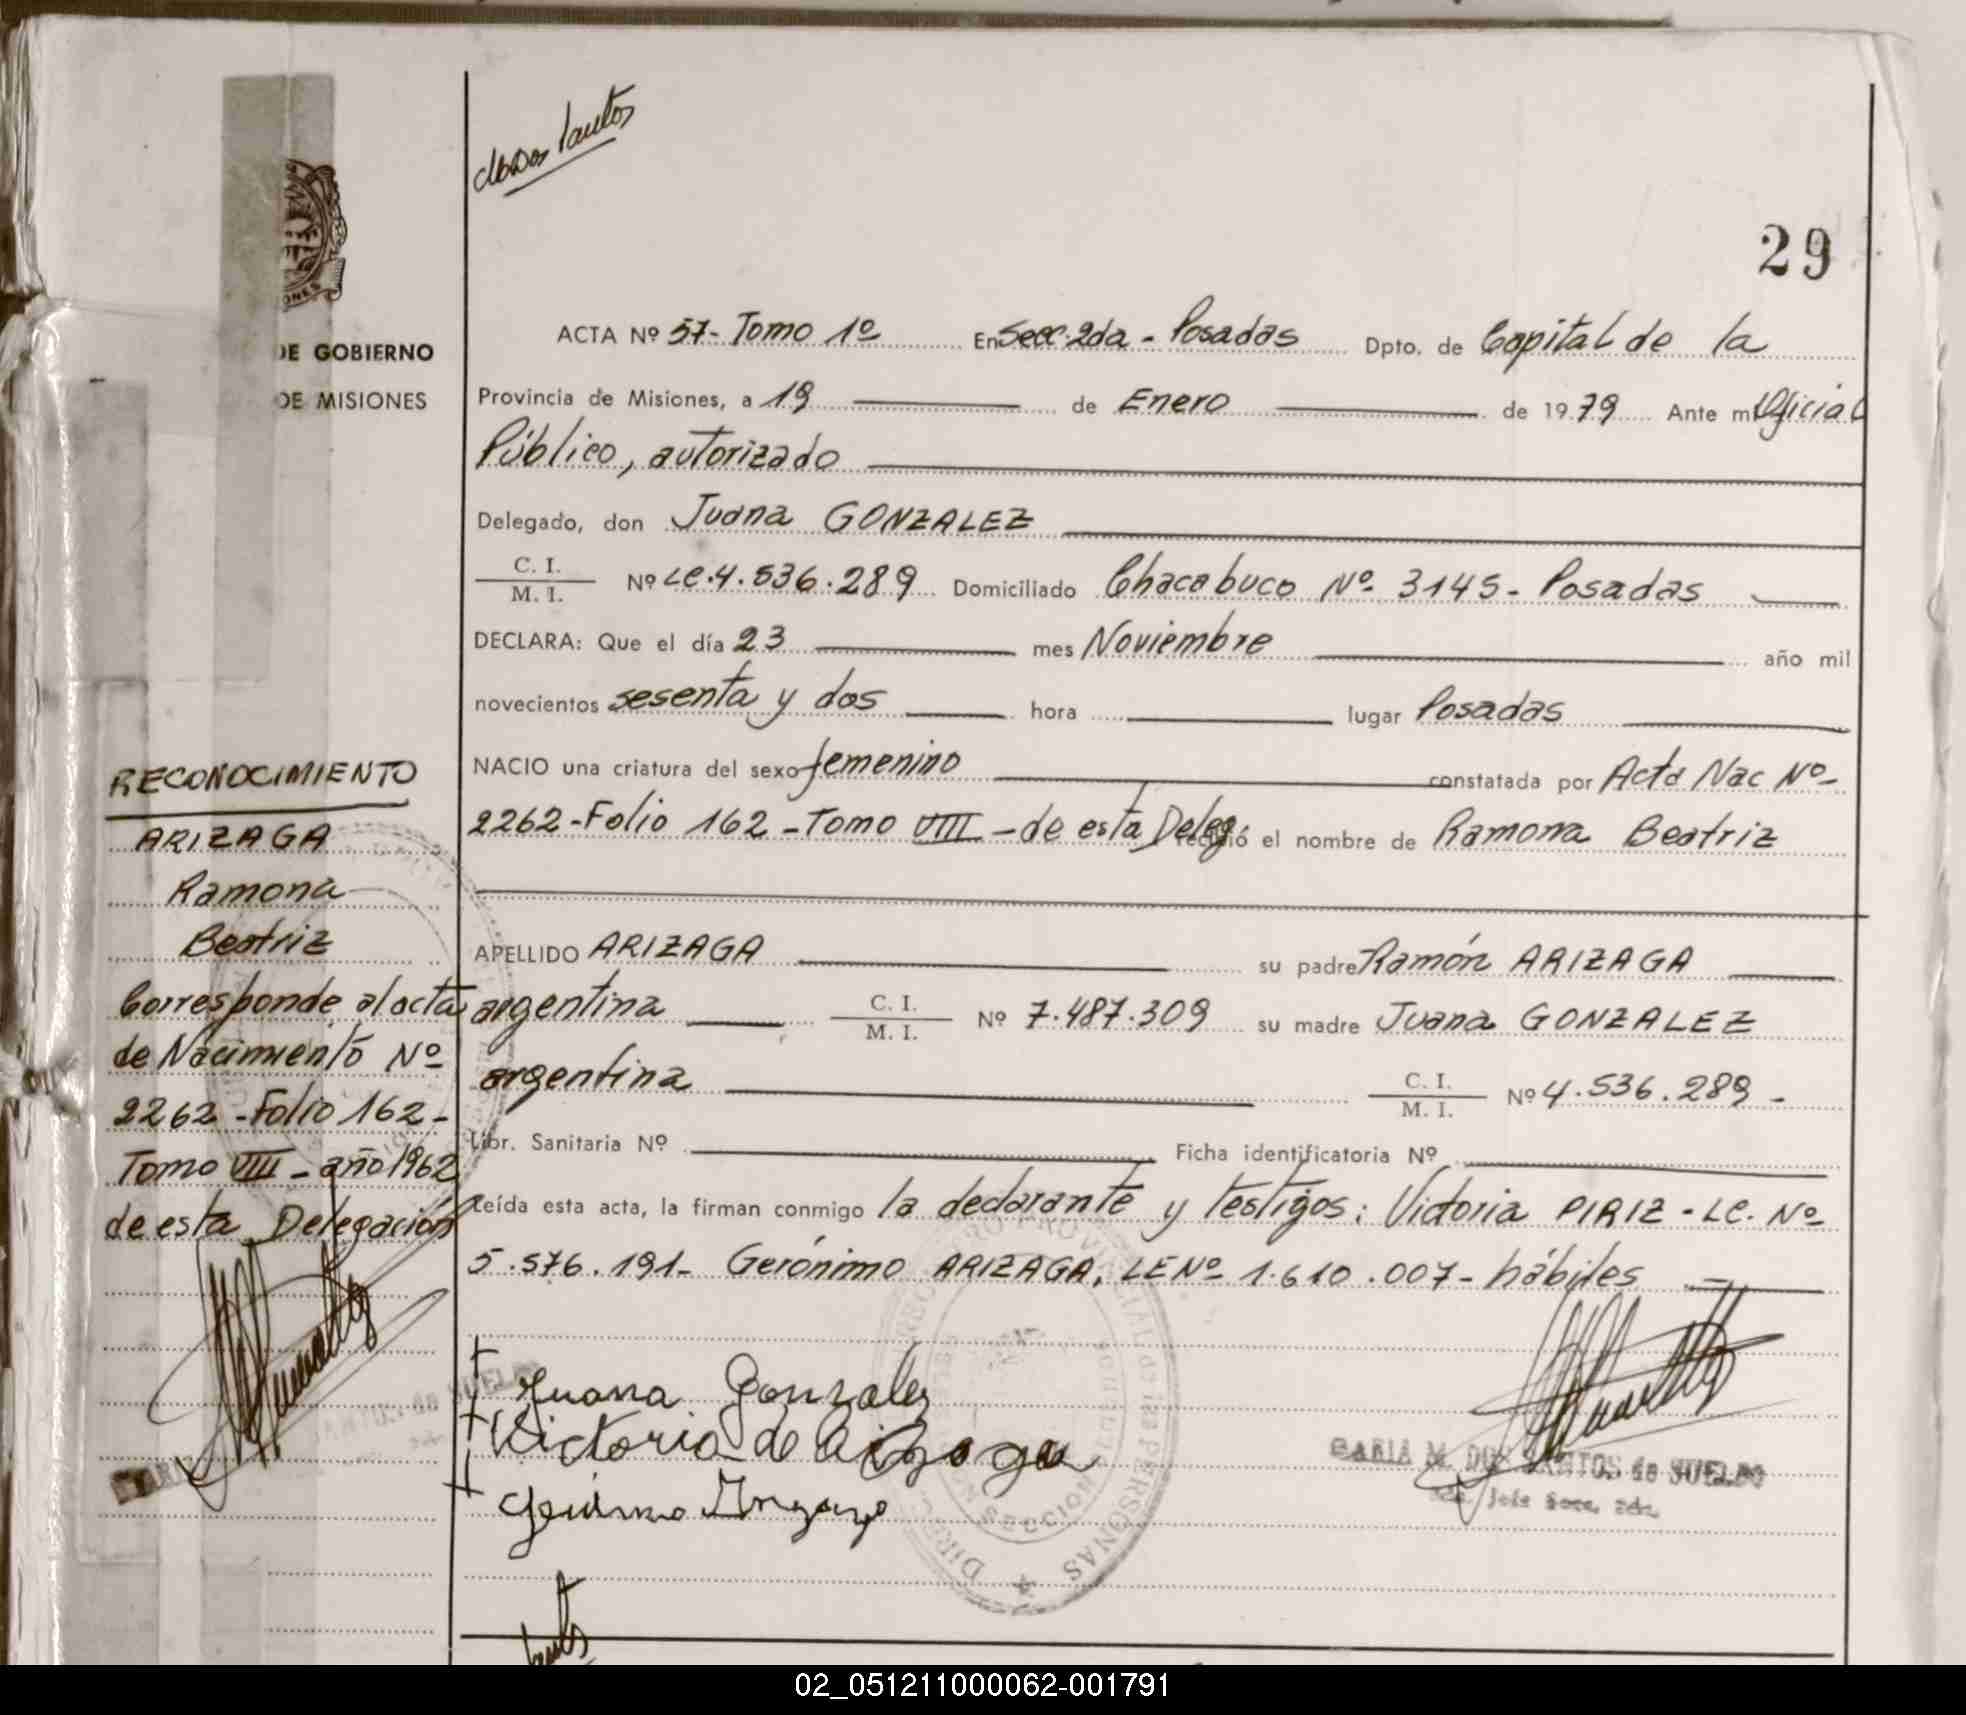 dos Santos
29
DE GOBIERNO
DE MISIONES
ACTA Nº 57- Tomo 1º En Secc. 2da - Posadas Dpto. de Capital de la
Provincia de Misiones, a 19 de Enero de 1979 Ante mi Oficial
Público, autorizado
Delegado, don Juana GONZALEZ
C. I.
M. I. Nº LC. 4.536.289 Domiciliado Chacabuco Nº 3145- Posadas
DECLARA: Que el día 23 mes Noviembre año mil
novecientos sesenta y dos hora lugar Posadas
NACIO una criatura del sexo femenino constatada por Acta Nac Nº
2262-Folio 162-Tomo VIII-de esta Deleg. recibió el nombre de Ramona Beatriz
APELLIDO ARIZAGA su padre Ramón ARIZAGA
argentina C. I.
M. I. Nº 7.487.309 su madre Juana GONZALEZ
argentina C. I.
M. I. Nº 4.536.289-
Libr. Sanitaria Nº Ficha identificatoria Nº
Leída esta acta, la firman conmigo la declarante y testigos: Victoria PIRIZ-LC. Nº
5.576.191- Gerónimo ARIZAGA, LE Nº 1.610.007- hábiles
Juana Gonzalez
Victoria de Arizaga
MARIA M. DOS SANTOS de SUELDO
Jefe Secc. 2da.
RECONOCIMIENTO
ARIZAGA
Ramona
Beatriz
Corresponde al acta
de Nacimiento Nº
2262-Folio 162-
Tomo VIII-año 1962
de esta Delegación
02_051211000062-001791